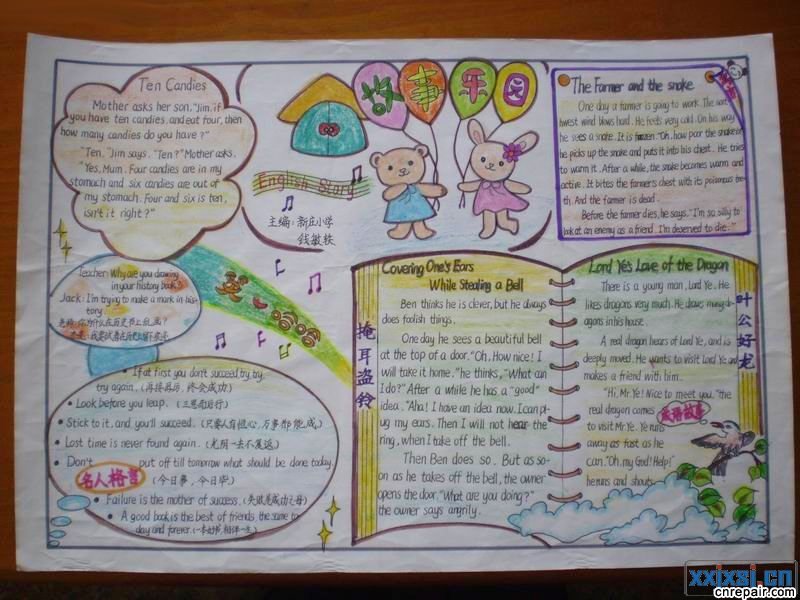 Ten Candies
Mother asks her son, "Jim, if
you have ten candies, and eat four, then
how many candies do you have?"
"Ten." Jim says. "Ten?" Mother asks.
"Yes, Mum. Four candies are in my
stomach and six candies are out of
my stomach. Four and six is ten,
isn't it right?"
故事乐园
English Story
主编:新庄小学
钱敏轶
The Farmer and the snake
One day a farmer is going to work. The nort
hwest wind blows hard. He feels very cold. On his way
he sees a snake. It is frozen. "Oh, how poor the snake is!"
he picks up the snake and puts it into his chest. He tries
to warm it. After a while, the snake becomes warm and
active. It bites the farmer's chest with its poisonous tee-
th. And the farmer is dead.
Before the farmer dies, he says, "I'm so silly to
look at an enemy as a friend. I'm deserved to die."
Teacher: Why are you drawing
in your history book?
Jack: I'm trying to make a mark in his-
tory.
老师:你为什么在历史书上乱画?
If at first you don't succeed, try, try,
try again. (再接再厉,终会成功)
Look before you leap. (三思而后行)
Stick to it, and you'll succeed. (只要人有恒心,万事都能成。)
Lost time is never found again. (光阴一去不复返)
Don't put off till tomorrow what should be done today.
名人格言 (今日事,今日毕)
Failure is the mother of success. (失败是成功之母)
A good book is the best of friends, the same to-
day and forever.
掩耳盗铃
Covering One's Ears
While Stealing a Bell
Ben thinks he is clever, but he always
does foolish things.
One day he sees a beautiful bell
at the top of a door. "Oh, How nice! I
will take it home." he thinks, "What can
I do?" After a while he has a "good"
idea, "Aha! I have an idea now. I can pl-
ug my ears. Then I will not hear the
ring, when I take off the bell.
Then Ben does so. But as so-
on as he takes off the bell, the owner
opens the door, "What are you doing?"
the owner says angrily.
Lord Ye's Love of the Dragon
叶公好龙
There is a young man, Lord Ye. He
likes dragons very much. He draws many dr-
agons in his house.
A real dragon hears of Lord Ye, and is
deeply moved. He wants to visit Lord Ye and
makes a friend with him.
"Hi, Mr. Ye! Nice to meet you," the
real dragon comes
成语故事
to visit Mr. Ye. Ye runs
away as fast as he
can. "Oh, my God! Help!"
he runs and shouts.
xxixsi.cn
cnrepair.com